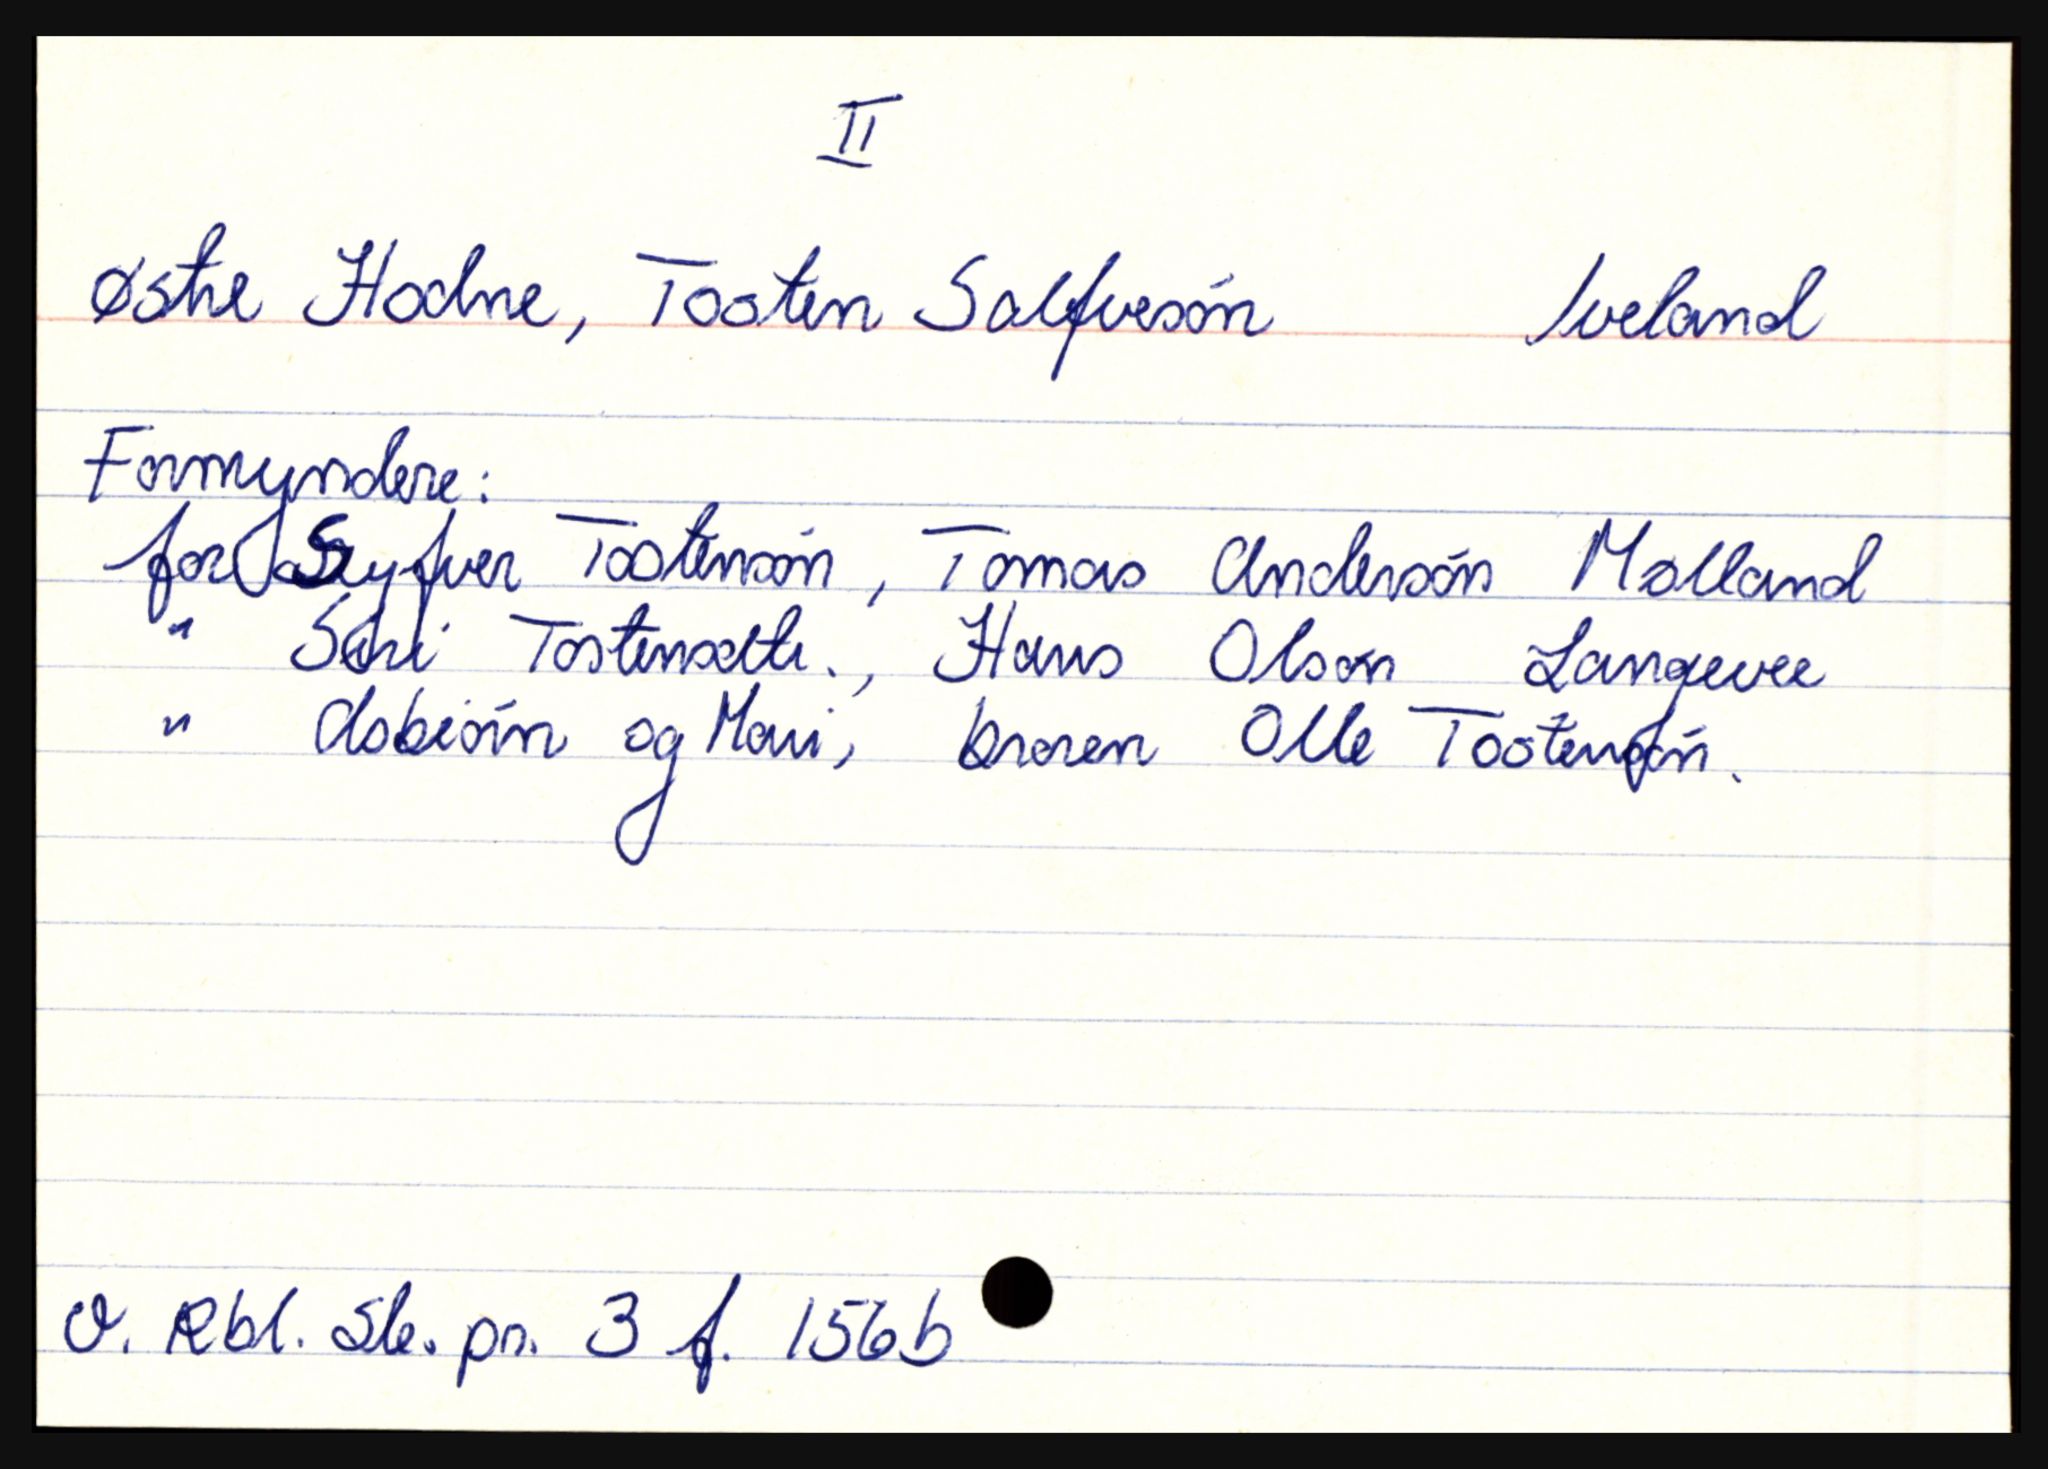 II
Østre Hodne, Tosten Salfvesón Iveland
Formyndere:
for Syfver Tostensón, Tomas Andersón Mølland
" Siri Tostensdtr., Hans Olsøn Langevee
" Asbiórn og Mari, broren Olle Tostensón.
V. Rbl. Sk. pr. 3 f. 156b